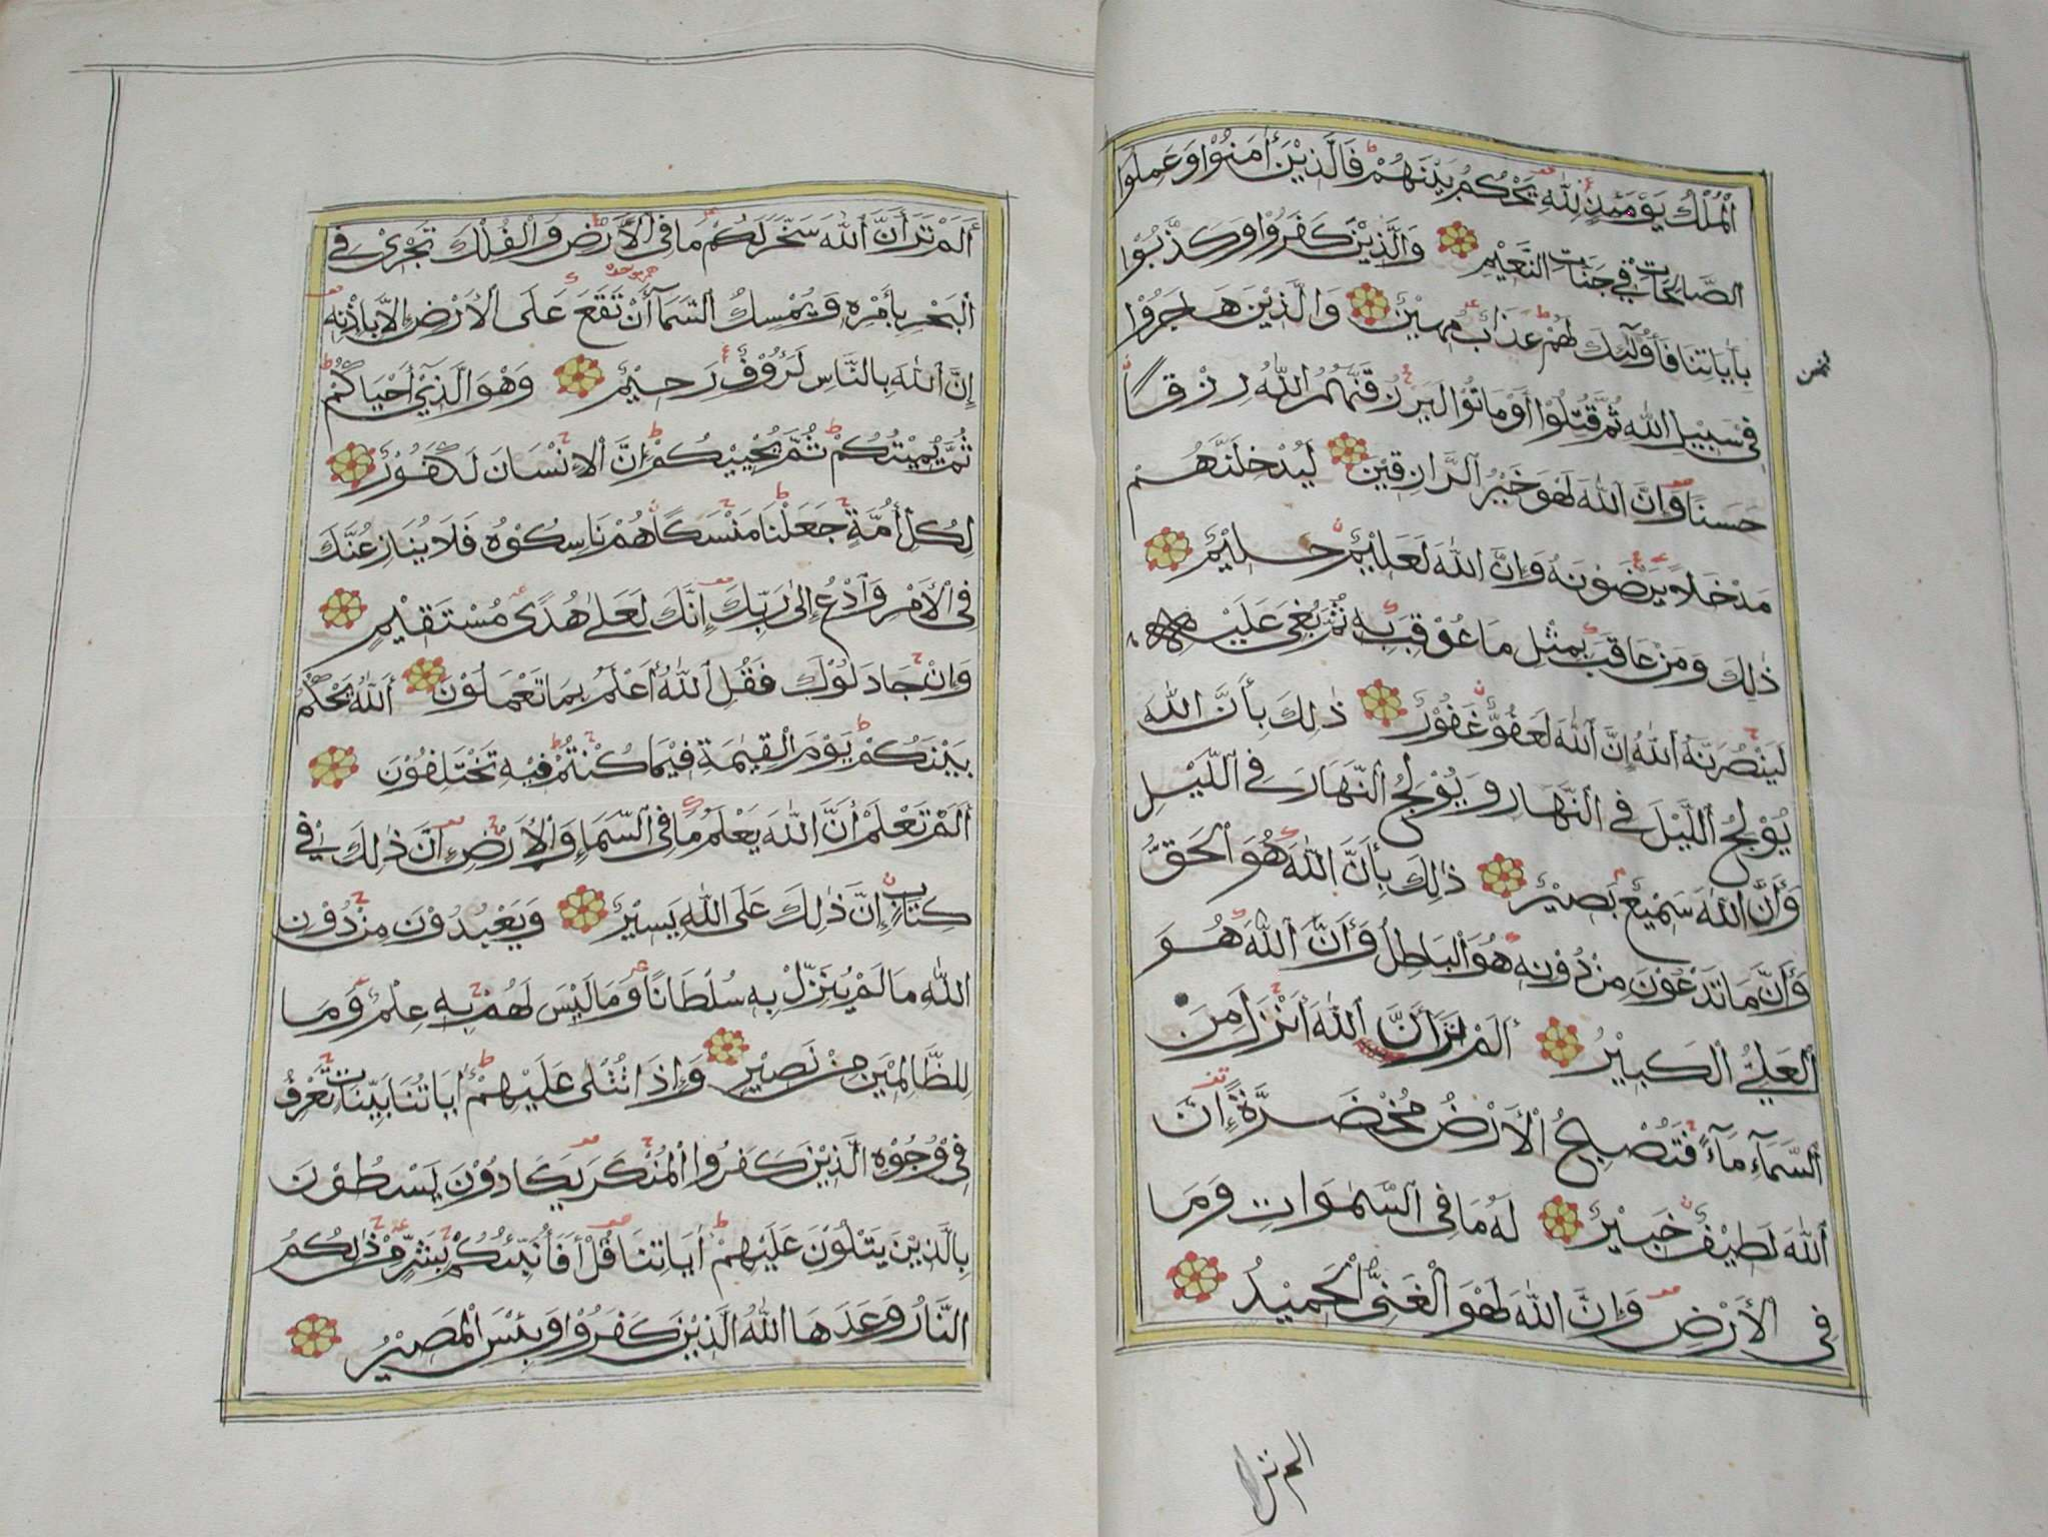 اَلْمُلْكُ يَوْمَئِذٍ لِلّٰهِ يَحْكُمُ بَيْنَهُمْ فَالَّذِيْنَ أٰمَنُوْا وَعَمِلُوا
الصَّالِحَاتِ فِيْ جَنَّاتِ النَّعِيْمِ وَالَّذِيْنَ كَفَرُوْا وَكَذَّبُوْا
بِأٰيَاتِنَا فَأُولٰٓئِكَ لَهُمْ عَذَابٌ مُهِيْنٌ وَالَّذِيْنَ هَاجَرُوْا
فِيْ سَبِيْلِ اللّٰهِ ثُمَّ قُتِلُوْا أَوْ مَاتُوْا لَيَرْزُقَنَّهُمُ اللّٰهُ رِزْقًا
حَسَنًا وَإِنَّ اللّٰهَ لَهْوَ خَيْرُ الرَّازِقِيْنَ لَيُدْخِلَنَّهُمْ
مَدْخَلًا يَرْضَوْنَهُ وَإِنَّ اللّٰهَ لَعَلِيْمٌ حَلِيْمٌ
ذٰلِكَ وَمَنْ عَاقَبَ بِمِثْلِ مَا عُوْقِبَ بِهِ ثُمَّ بُغِيَ عَلَيْهِ
لَيَنْصُرَنَّهُ اللّٰهُ إِنَّ اللّٰهَ لَعَفُوٌّ غَفُوْرٌ ذٰلِكَ بِأَنَّ اللّٰهَ
يُوْلِجُ اللَّيْلَ فِي النَّهَارِ وَيُوْلِجُ النَّهَارَ فِي اللَّيْلِ
وَأَنَّ اللّٰهَ سَمِيْعٌ بَصِيْرٌ ذٰلِكَ بِأَنَّ اللّٰهَ هُوَ الْحَقُّ
وَأَنَّ مَا تَدْعُوْنَ مِنْ دُوْنِهِ هُوَ الْبَاطِلُ وَأَنَّ اللّٰهَ هُوَ
الْعَلِيُّ الْكَبِيْرُ أَلَمْ تَرَ أَنَّ اللّٰهَ أَنْزَلَ مِنَ
السَّمَآءِ مَآءً فَتُصْبِحُ الْأَرْضُ مُخْضَرَّةً إِنَّ
اللّٰهَ لَطِيْفٌ خَبِيْرٌ لَهُ مَا فِي السَّمٰوَاتِ وَمَا
فِي الْأَرْضِ وَإِنَّ اللّٰهَ لَهْوَ الْغَنِيُّ الْحَمِيْدُ
الم تر
أَلَمْ تَرَ أَنَّ اللّٰهَ سَخَّرَ لَكُمْ مَا فِي الْأَرْضِ وَالْفُلْكَ تَجْرِيْ فِي
الْبَحْرِ بِأَمْرِهِ وَيُمْسِكُ السَّمَآ أَنْ تَقَعَ عَلَى الْأَرْضِ إِلَّا بِإِذْنِهِ
إِنَّ اللّٰهَ بِالنَّاسِ لَرَؤُوْفٌ رَحِيْمٌ وَهْوَ الَّذِيْ أَحْيَاكُمْ
ثُمَّ يُمِيْتُكُمْ ثُمَّ يُحْيِيْكُمْ إِنَّ الْإِنْسَانَ لَكَفُوْرٌ
لِكُلِّ أُمَّةٍ جَعَلْنَا مَنْسَكًا هُمْ نَاسِكُوْهُ فَلَا يُنَازِعُنَّكَ
فِي الْأَمْرِ وَادْعُ إِلٰى رَبِّكَ إِنَّكَ لَعَلٰى هُدًى مُسْتَقِيْمٍ
وَإِنْ جَادَلُوْكَ فَقُلِ اللّٰهُ أَعْلَمُ بِمَا تَعْمَلُوْنَ اَللّٰهُ يَحْكُمُ
بَيْنَكُمْ يَوْمَ الْقِيٰمَةِ فِيْمَا كُنْتُمْ فِيْهِ تَخْتَلِفُوْنَ
أَلَمْ تَعْلَمْ أَنَّ اللّٰهَ يَعْلَمُ مَا فِي السَّمَاءِ وَالْأَرْضِ إِنَّ ذٰلِكَ فِيْ
كِتَابٍ إِنَّ ذٰلِكَ عَلَى اللّٰهِ يَسِيْرٌ وَيَعْبُدُوْنَ مِنْ دُوْنِ
اللّٰهِ مَا لَمْ يُنَزِّلْ بِهِ سُلْطَانًا وَمَا لَيْسَ لَهُمْ بِهِ عِلْمٌ وَمَا
لِلظَّالِمِيْنَ مِنْ نَصِيْرٍ وَإِذَا تُتْلٰى عَلَيْهِمْ أٰيَاتُنَا بَيِّنَاتٍ تَعْرِفُ
فِيْ وُجُوْهِ الَّذِيْنَ كَفَرُوا الْمُنْكَرَ يَكَادُوْنَ يَسْطُوْنَ
بِالَّذِيْنَ يَتْلُوْنَ عَلَيْهِمْ أٰيَاتِنَا قُلْ أَفَأُنَبِّئُكُمْ بِشَرٍّ مِنْ ذٰلِكُمُ
النَّارُ وَعَدَهَا اللّٰهُ الَّذِيْنَ كَفَرُوْا وَبِئْسَ الْمَصِيْرُ